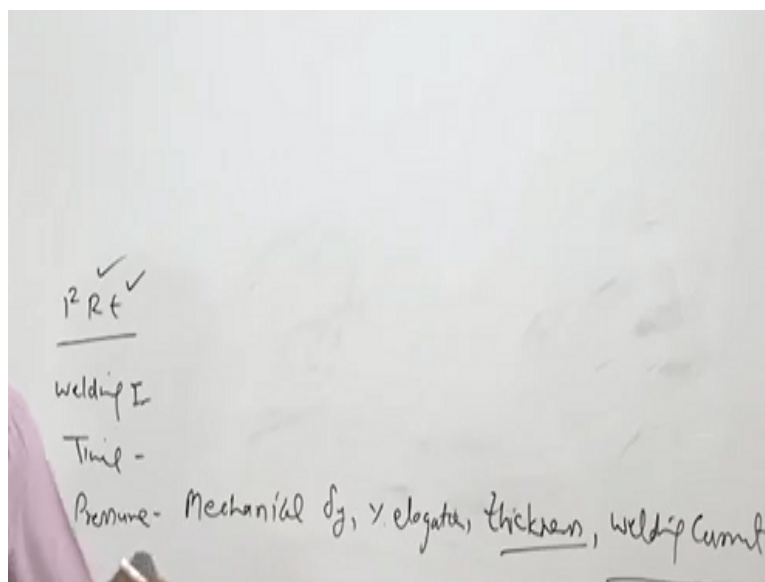 I² R t
Welding I
Time -
Pressure - Mechanical σy, % elogation, thickness, welding Current